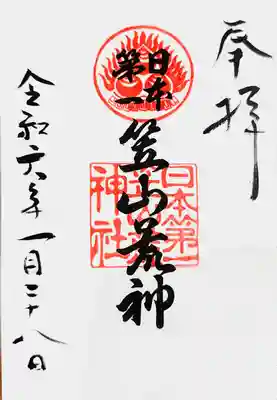 奉拝
日本
第一
笠山荒神
日本第一
神社
令和六年一月二十八日